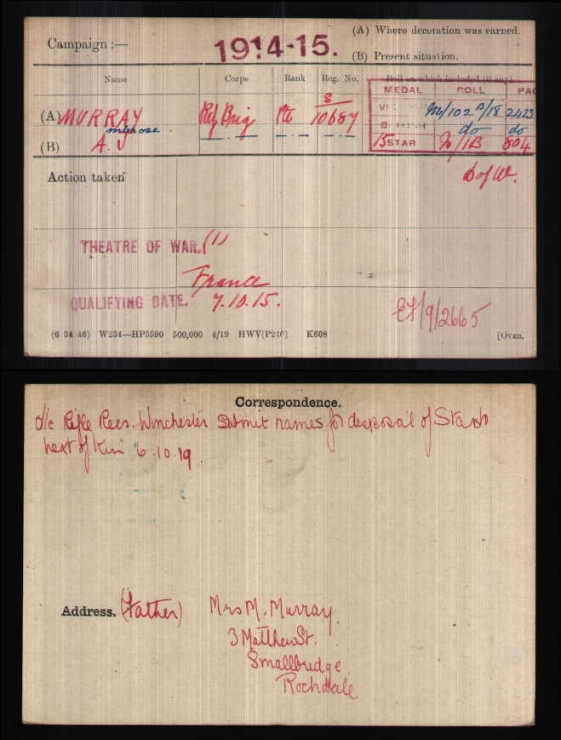 (A) Where decoration was earned.
Campaign :— 1914-15.
(B) Present situation.
Name Corps Rank Reg. No. Roll on which included (if any)
MEDAL ROLL PAG
(A) MURRAY Rif Brig Pte S/10687
M/102 B/18 2423
do do
(B) A. J
15 STAR 804
Action taken D of W.
THEATRE OF WAR. (1)
France
QUALIFYING DATE. 7.10.15.
EF/9/2665
(6 34 46) W234—HP5590 500,000 4/19 HWV(P240) K608 [OVER.
Correspondence.
O/c Rifle Recs. Winchester Submit names for disposal of Stars
next of Kin 6.10.19.
Address. (Father) Mrs M. Murray.
3 Matthew St.
Smallbridge
Rochdale